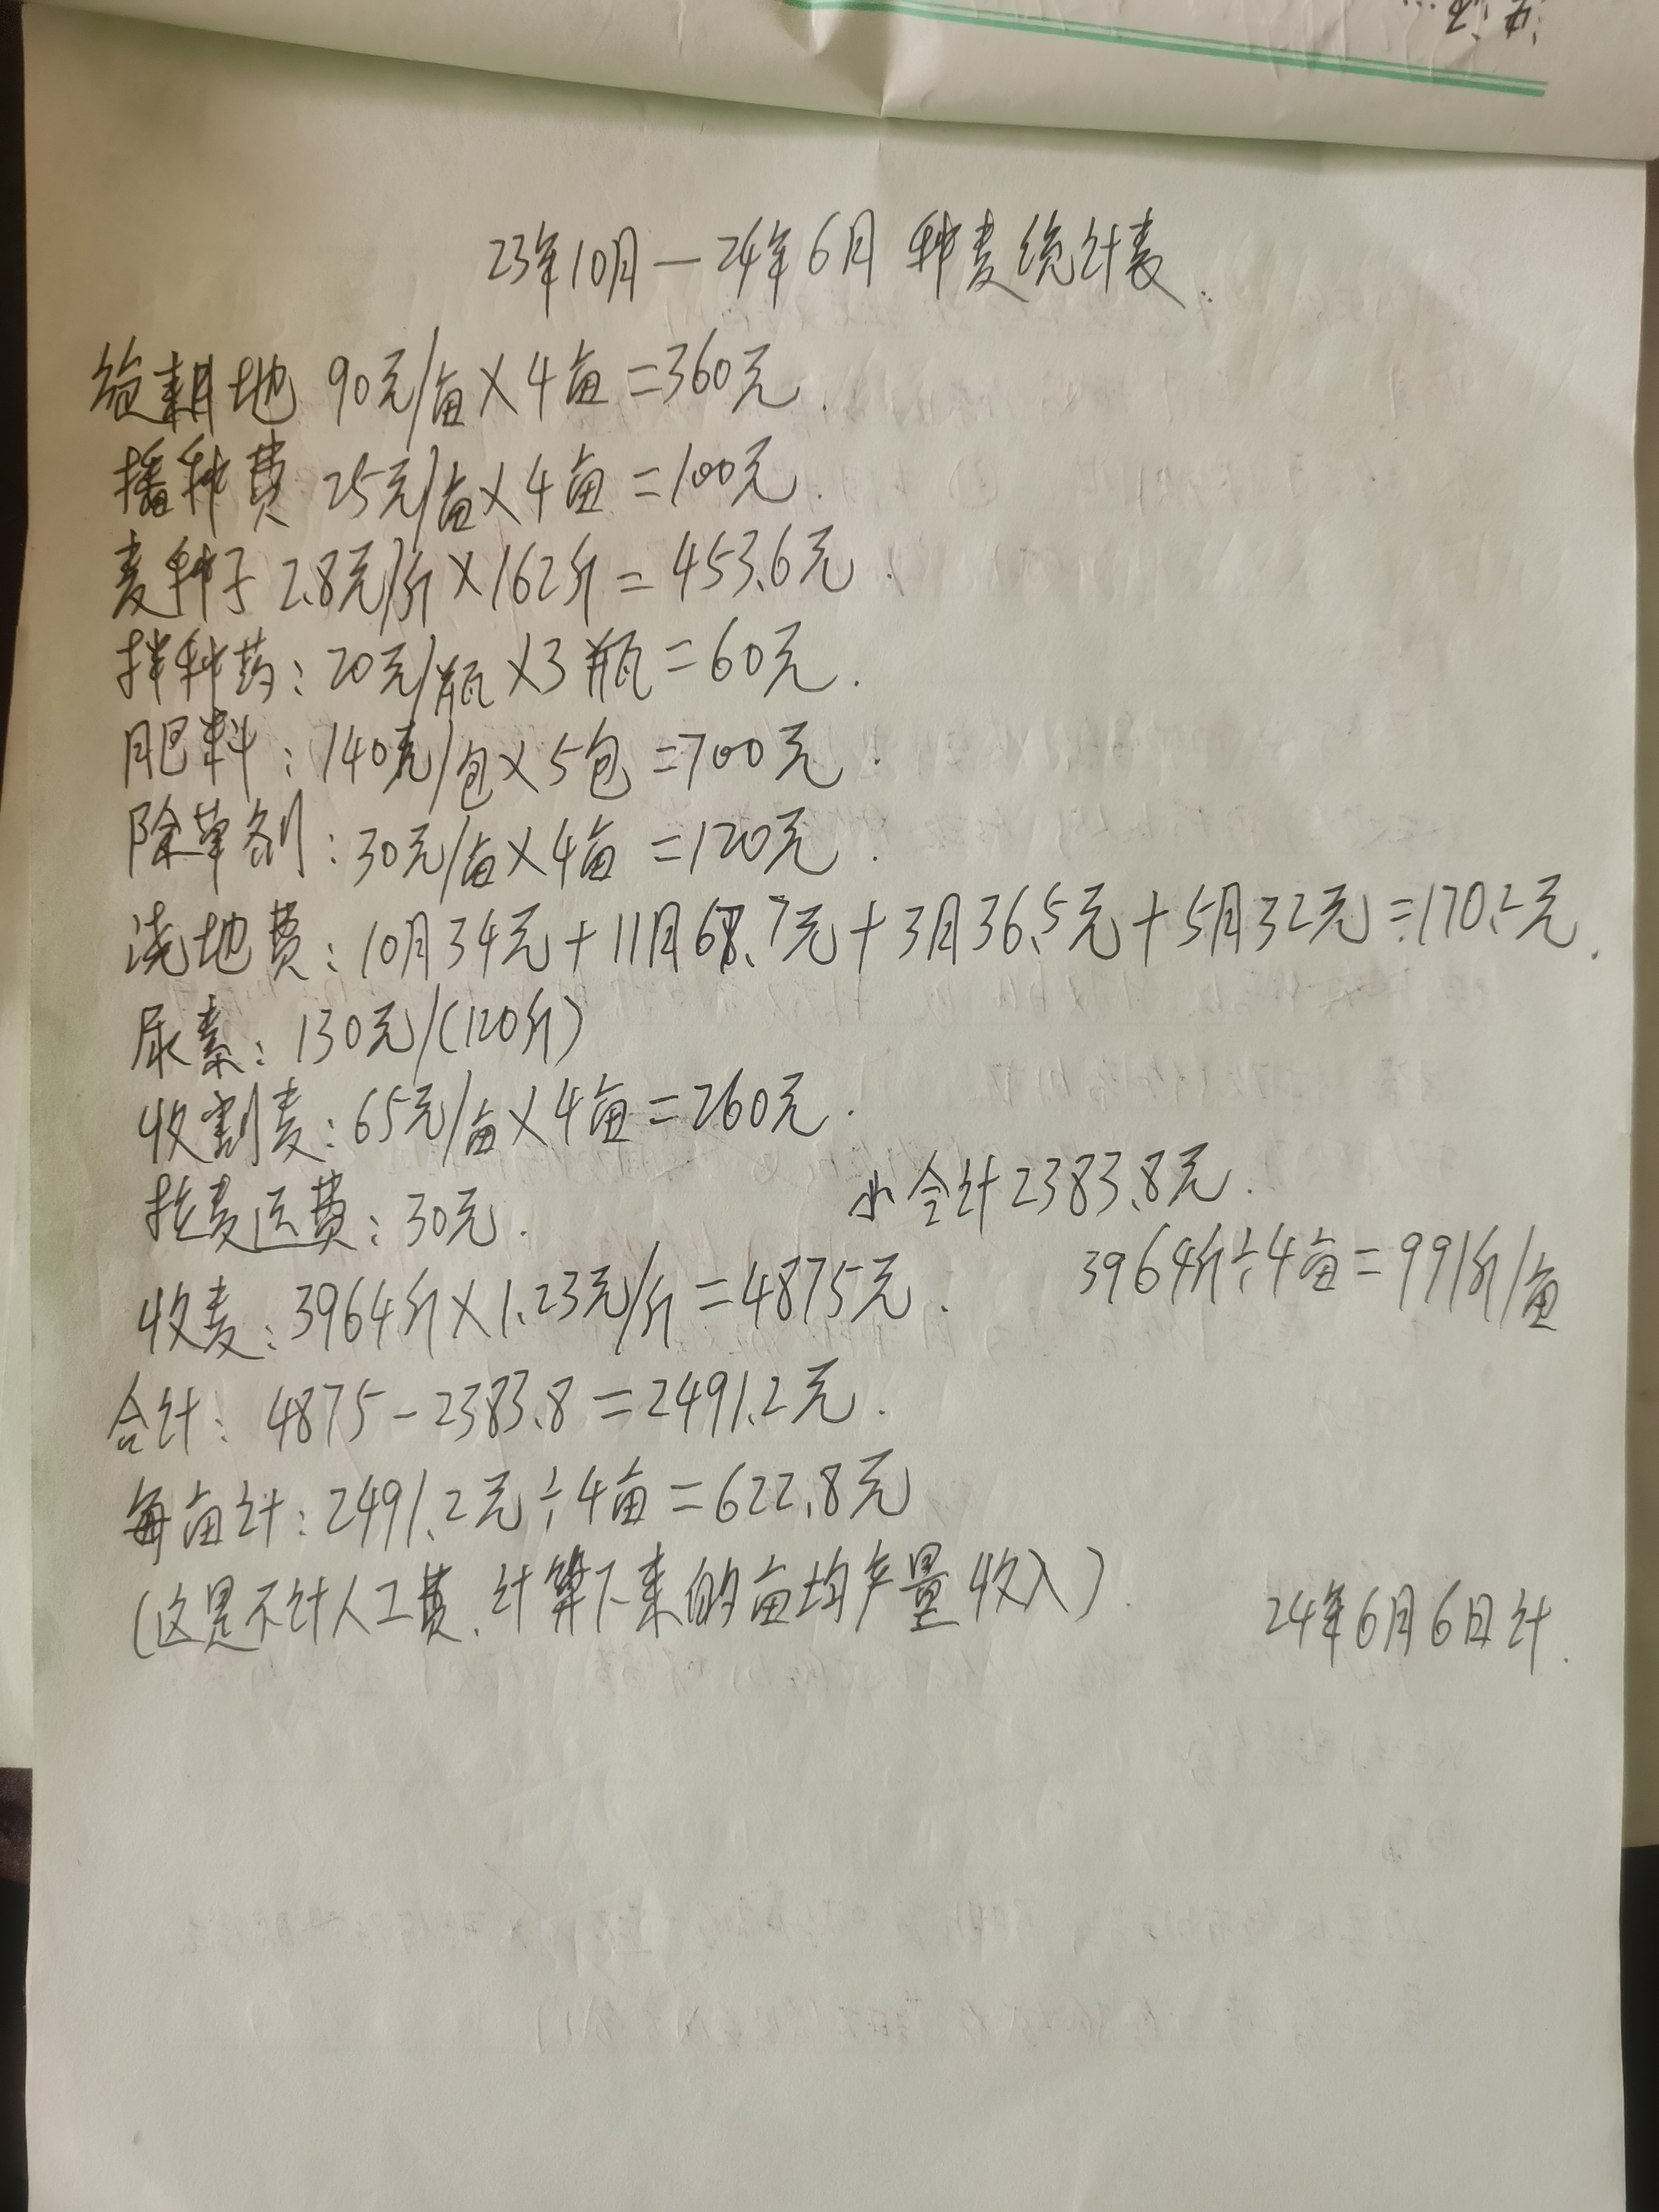 23年10月—24年6月 种麦统计表.
耕地 90元/亩×4亩=360元.
播种费 25元/亩×4亩=100元.
麦种子 2.8元/斤×162斤=453.6元.
拌种药:20元/瓶×3瓶=60元.
肥料:140元/包×5包=700元.
除草剂:30元/亩×4亩=120元.
浇地费:10月34元+11月67.7元+3月36.5元+5月32元=170.2元.
尿素:130元/(120斤)
收割麦:65元/亩×4亩=260元.
拉麦运费:30元. 小合计2383.8元.
收麦:3964斤×1.23元/斤=4875元. 3964斤÷4亩=991斤/亩
合计:4875-2383.8=2491.2元.
每亩计:2491.2元÷4亩=622.8元
(这是不计人工费.计算下来的亩均产量收入).
24年6月6日计.